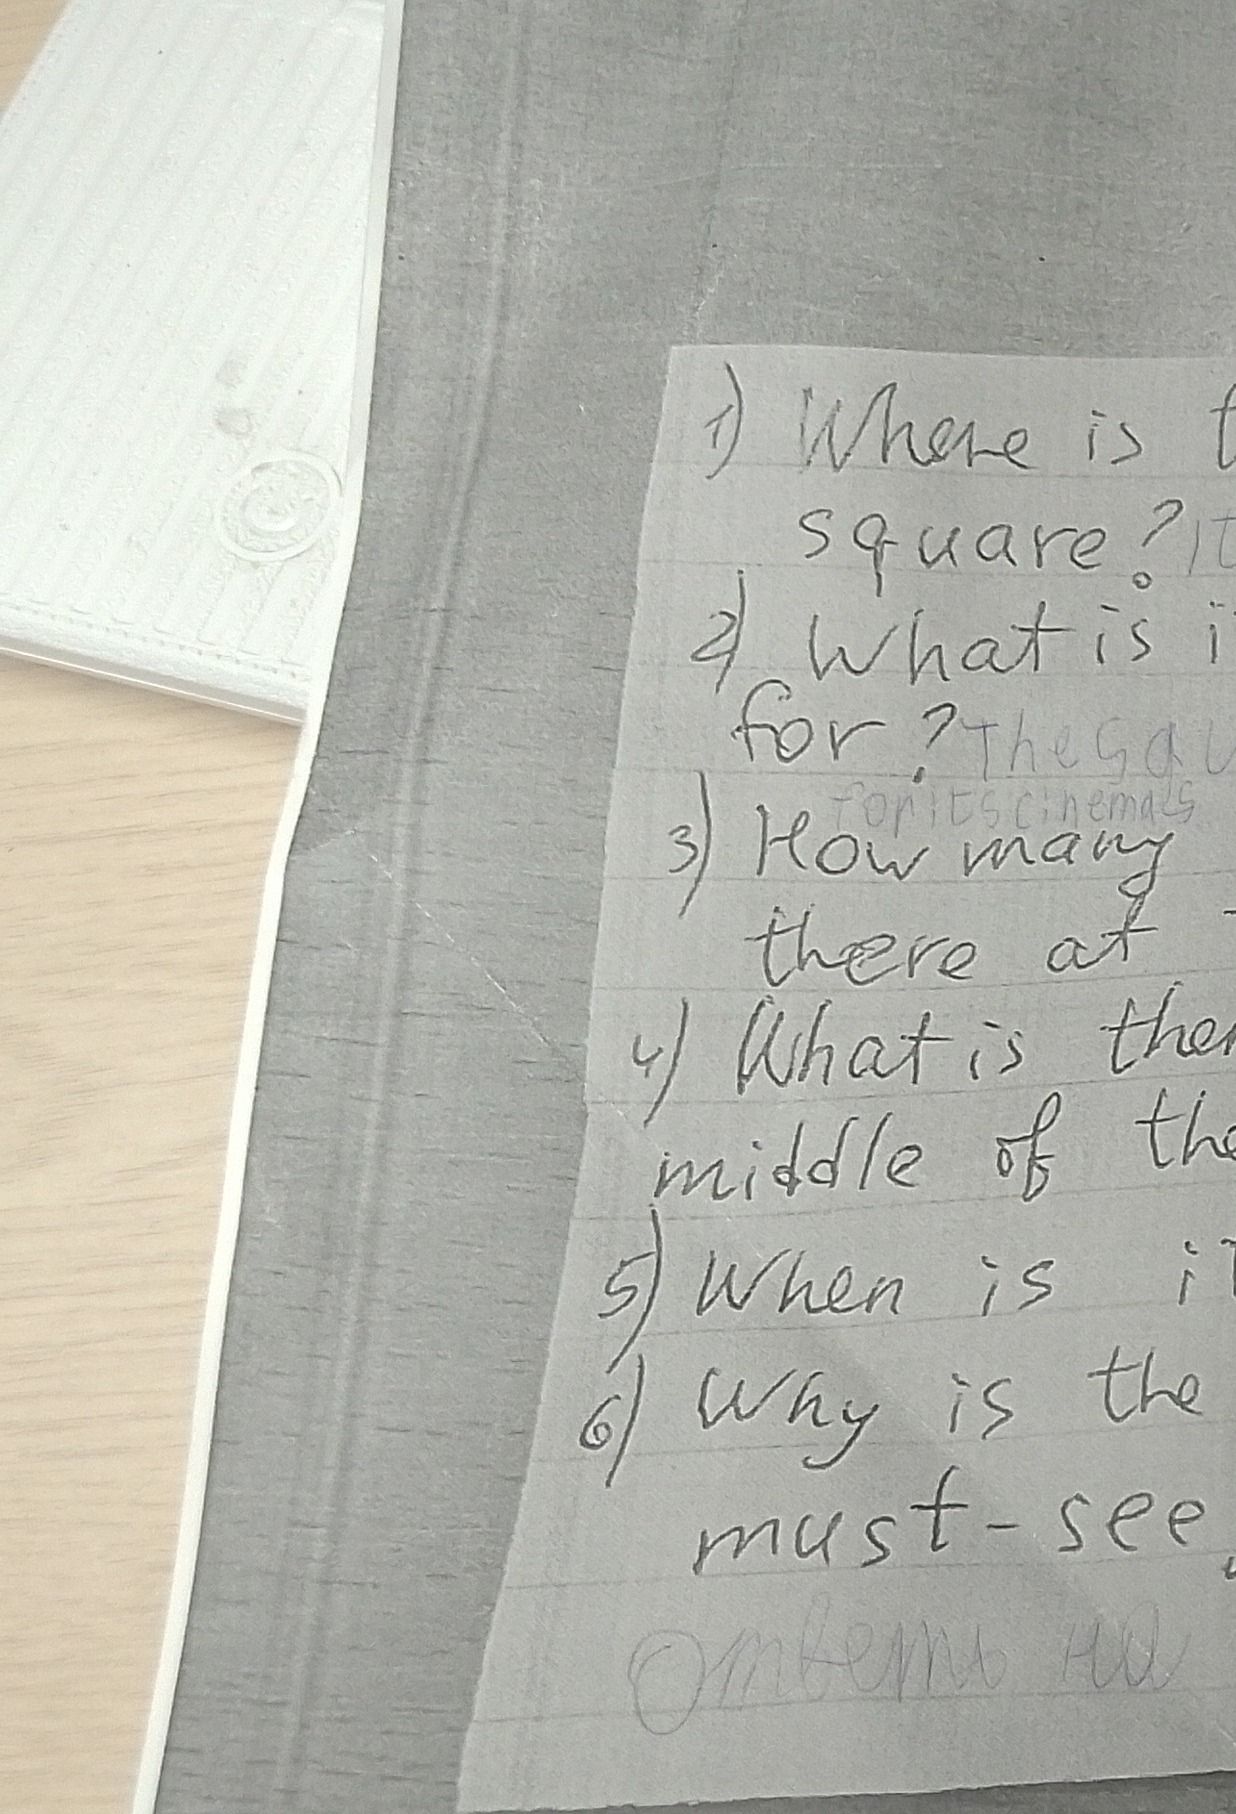 1) Where is t
square? It
2) What is i
for? The squ
for its cinemaes
3) How many
there at
4) What is ther
middle of the
5) When is it
6) Why is the
must-see
Ответь на